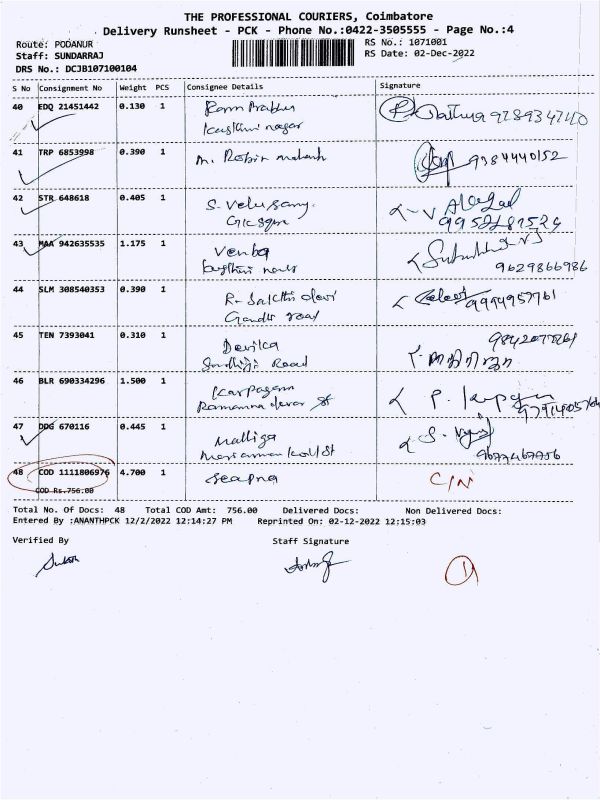 THE PROFESSIONAL COURIERS, Coimbatore
Delivery Runsheet - PCK - Phone No.:0422-3505555 - Page No.:4
Route: PODANUR
RS No.: 1071001
Staff: SUNDARRAJ
RS Date: 02-Dec-2022
DRS No.: DCJB107100104
S No Consignment No Weight PCS Consignee Details Signature
40 EDQ 21451442 0.130 1 Ram Prabhu
Kasthuri nagar
41 TRP 6853998 0.390 1 M. Robin 9384440152
42 STR 648618 0.405 1 S. Velusamy
43 MAA 942635535 1.175 1 Venba
9629866986
44 SLM 308540353 0.390 1 R. Sakthi devi
Gandhi road
45 TEN 7393041 0.310 1 Devika
Road
46 BLR 690334296 1.500 1 Karpagam P.
Ramanna devar St
47 DDG 670116 0.445 1 Malliga S.
9677467756
48 COD 1111806976 4.700 1 C/N
COD Rs.756.00
Total No. Of Docs: 48 Total COD Amt: 756.00 Delivered Docs: Non Delivered Docs:
Entered By :ANANTHPCK 12/2/2022 12:14:27 PM Reprinted On: 02-12-2022 12:15:03
Verified By Staff Signature